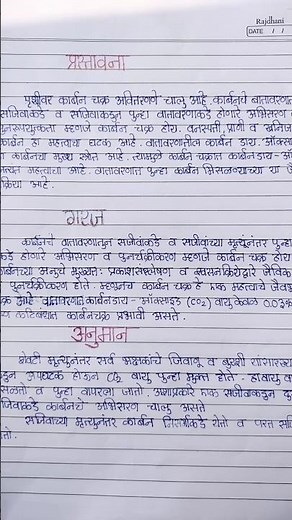 Rajdhani
DATE / /
प्रस्तावना
पृथ्वीवर कार्बन चक्र अविरतपणे चालु आहे. कार्बनचे वातावरण
सजीवांकडे व सजीवांकडून पुन्हा वातावरणाकडे होणारे अभिसरण व
पुनरुपयुक्तता म्हणजे कार्बन चक्र होय. वनस्पती, प्राणी व खनिज
कार्बन हा महत्वाचा घटक आहे. वातावरणातील कार्बन डाय. ऑक्सा
कार्बनचा मुख्य स्त्रोत आहे. त्यामुळे कार्बन चक्रात कार्बनडाय - ऑ
महत्वाचा आहे. वातावरणात पुन्हा कार्बन मिसळण्याच्या या जै
क्रिया आहे.
गरज
कार्बनचे वातावरणातून सजीवांकडे व सजीवांच्या मृत्यूनंतर पुन्हा
कडे होणारे अभिसरण व पुनर्चक्रीकरण म्हणजे कार्बन चक्र होय
कार्बनच्या अणुचे मुख्यतः प्रकाशसंश्लेषण व श्वसनक्रियेद्वारे जैविक
पुनर्चक्रीकरण होते. म्हणूनच कार्बन चक्र हे एक महत्वाचे जैव
चक्र आहे वातावरणात कार्बनडाय - ऑक्साइड (CO2) वायु केवळ 0.03
कटिबंधात कार्बनचक्र प्रभावी असते.
अनुमान
शेवटी मृत्यूनंतर सर्व भक्षकांचे जिवाणू व बुरशी यांसारख्या
कडून अपघटक होऊन CO2 वायु पुन्हा मुक्त होते - हा वायु वा
मिसळतो व पुन्हा वापरला जातो. अशाप्रकारे एक सजीवाकडून दु
सजीवाकडे कार्बनचे अभिसरण चालु असते
सजीवाच्या मृत्यूनंतर कार्बन निसर्गाकडे येतो व परत सजि